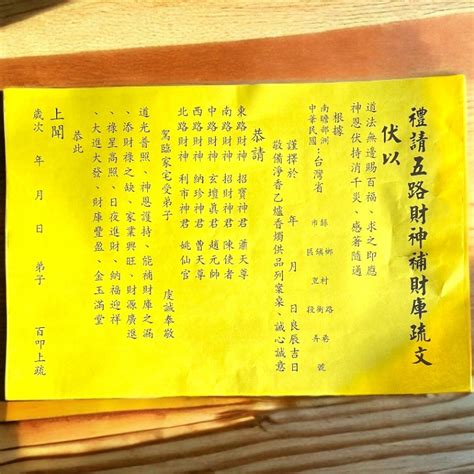 禮請五路財神補財庫疏文
伏以
道法無邊賜百福、求之即應
神恩伏持消千災、感著隨通
根據
南瞻部洲 縣 鄉 村 路 巷
中華民國：台灣省 市 鎮 里 街 弄 號
市 民 至 段
謹擇於 年 月 日良辰吉日
敬備淨香乙爐香燭供品列案桌、誠心誠意
恭請
東路財神 招寶神君 蕭天尊
南路財神 招財神君 陳使者
中路財神 玄壇真君 趙元帥
西路財神 納珍神君 曹天尊
北路財神 利市神君 姚仙官
駕臨家宅受弟子 虔誠奉敬
道光普照、神恩護持、能補財庫之漏
、添財祿之缺、家業興旺、財源廣進
、祿星高照、日夜進財、納福迎祥
、大進大發、財庫豐盈、金玉滿堂
恭此
上聞
歲次 年 月 日 弟子 百叩上疏